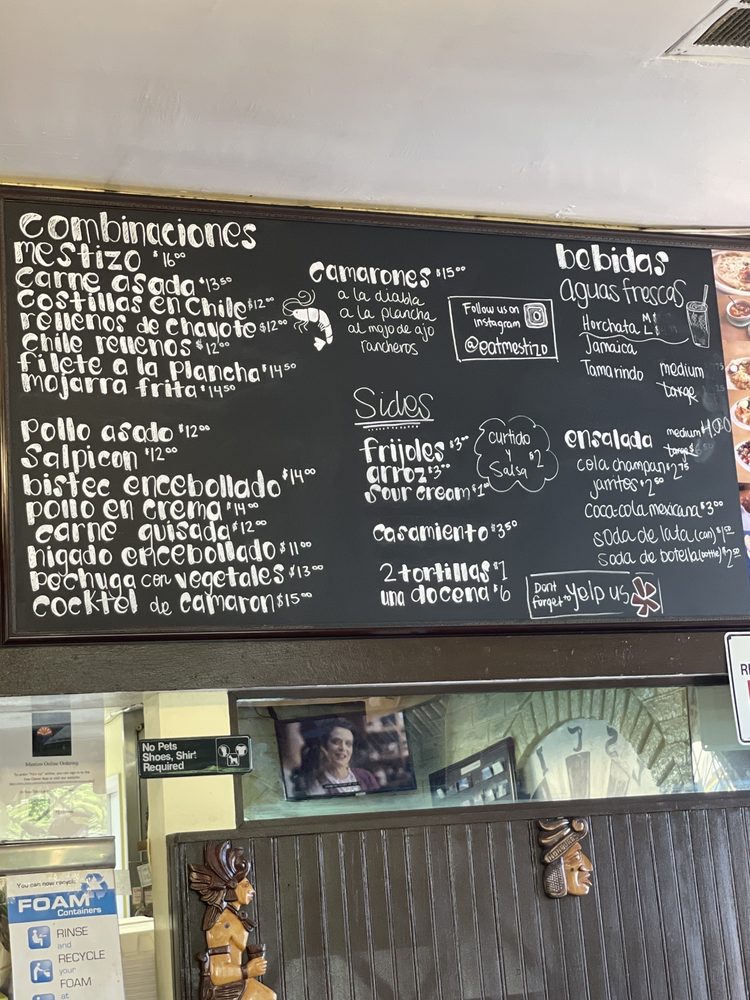 combinaciones
mestizo $16⁰⁰
carne asada $13⁵⁰
costillas en chile $12⁰⁰
rellenos de chayote $12⁰⁰
chile rellenos $12⁰⁰
filete a la plancha $14⁵⁰
mojarra frita $14⁵⁰
pollo asado $12⁰⁰
Salpicon $12⁰⁰
bistec encebollado $14⁰⁰
pollo en crema $14⁰⁰
carne guisada $12⁰⁰
higado encebollado $11⁰⁰
pechuga con vegetales $13⁰⁰
cocktel de camaron $15⁰⁰
camarones $15⁰⁰
a la diabla
a la plancha
al mojo de ajo
rancheros
Follow us on
instagram
@eatmestizo
Sides
frijoles $3⁰⁰
arroz $3⁰⁰
sour cream $1⁰⁰
curtido
y
Salsa $2
casamiento $3⁵⁰
2 tortillas $1
una docena $6
bebidas
aguas frescas
Horchata M
L
Jamaica
Tamarindo medium
large
ensalada medium 4.00
large
cola champan $2⁷⁵
jarritos $2⁵⁰
coca-cola mexicana $3⁰⁰
soda de lata (can) $1⁵⁰
soda de botella (bottle) $2⁵⁰
Dont
forget to yelp us
No Pets
Shoes, Shirt
Required
Mestizo Online Ordering
You can now recycle
FOAM
Containers
RINSE
and
RECYCLE
your
FOAM
at